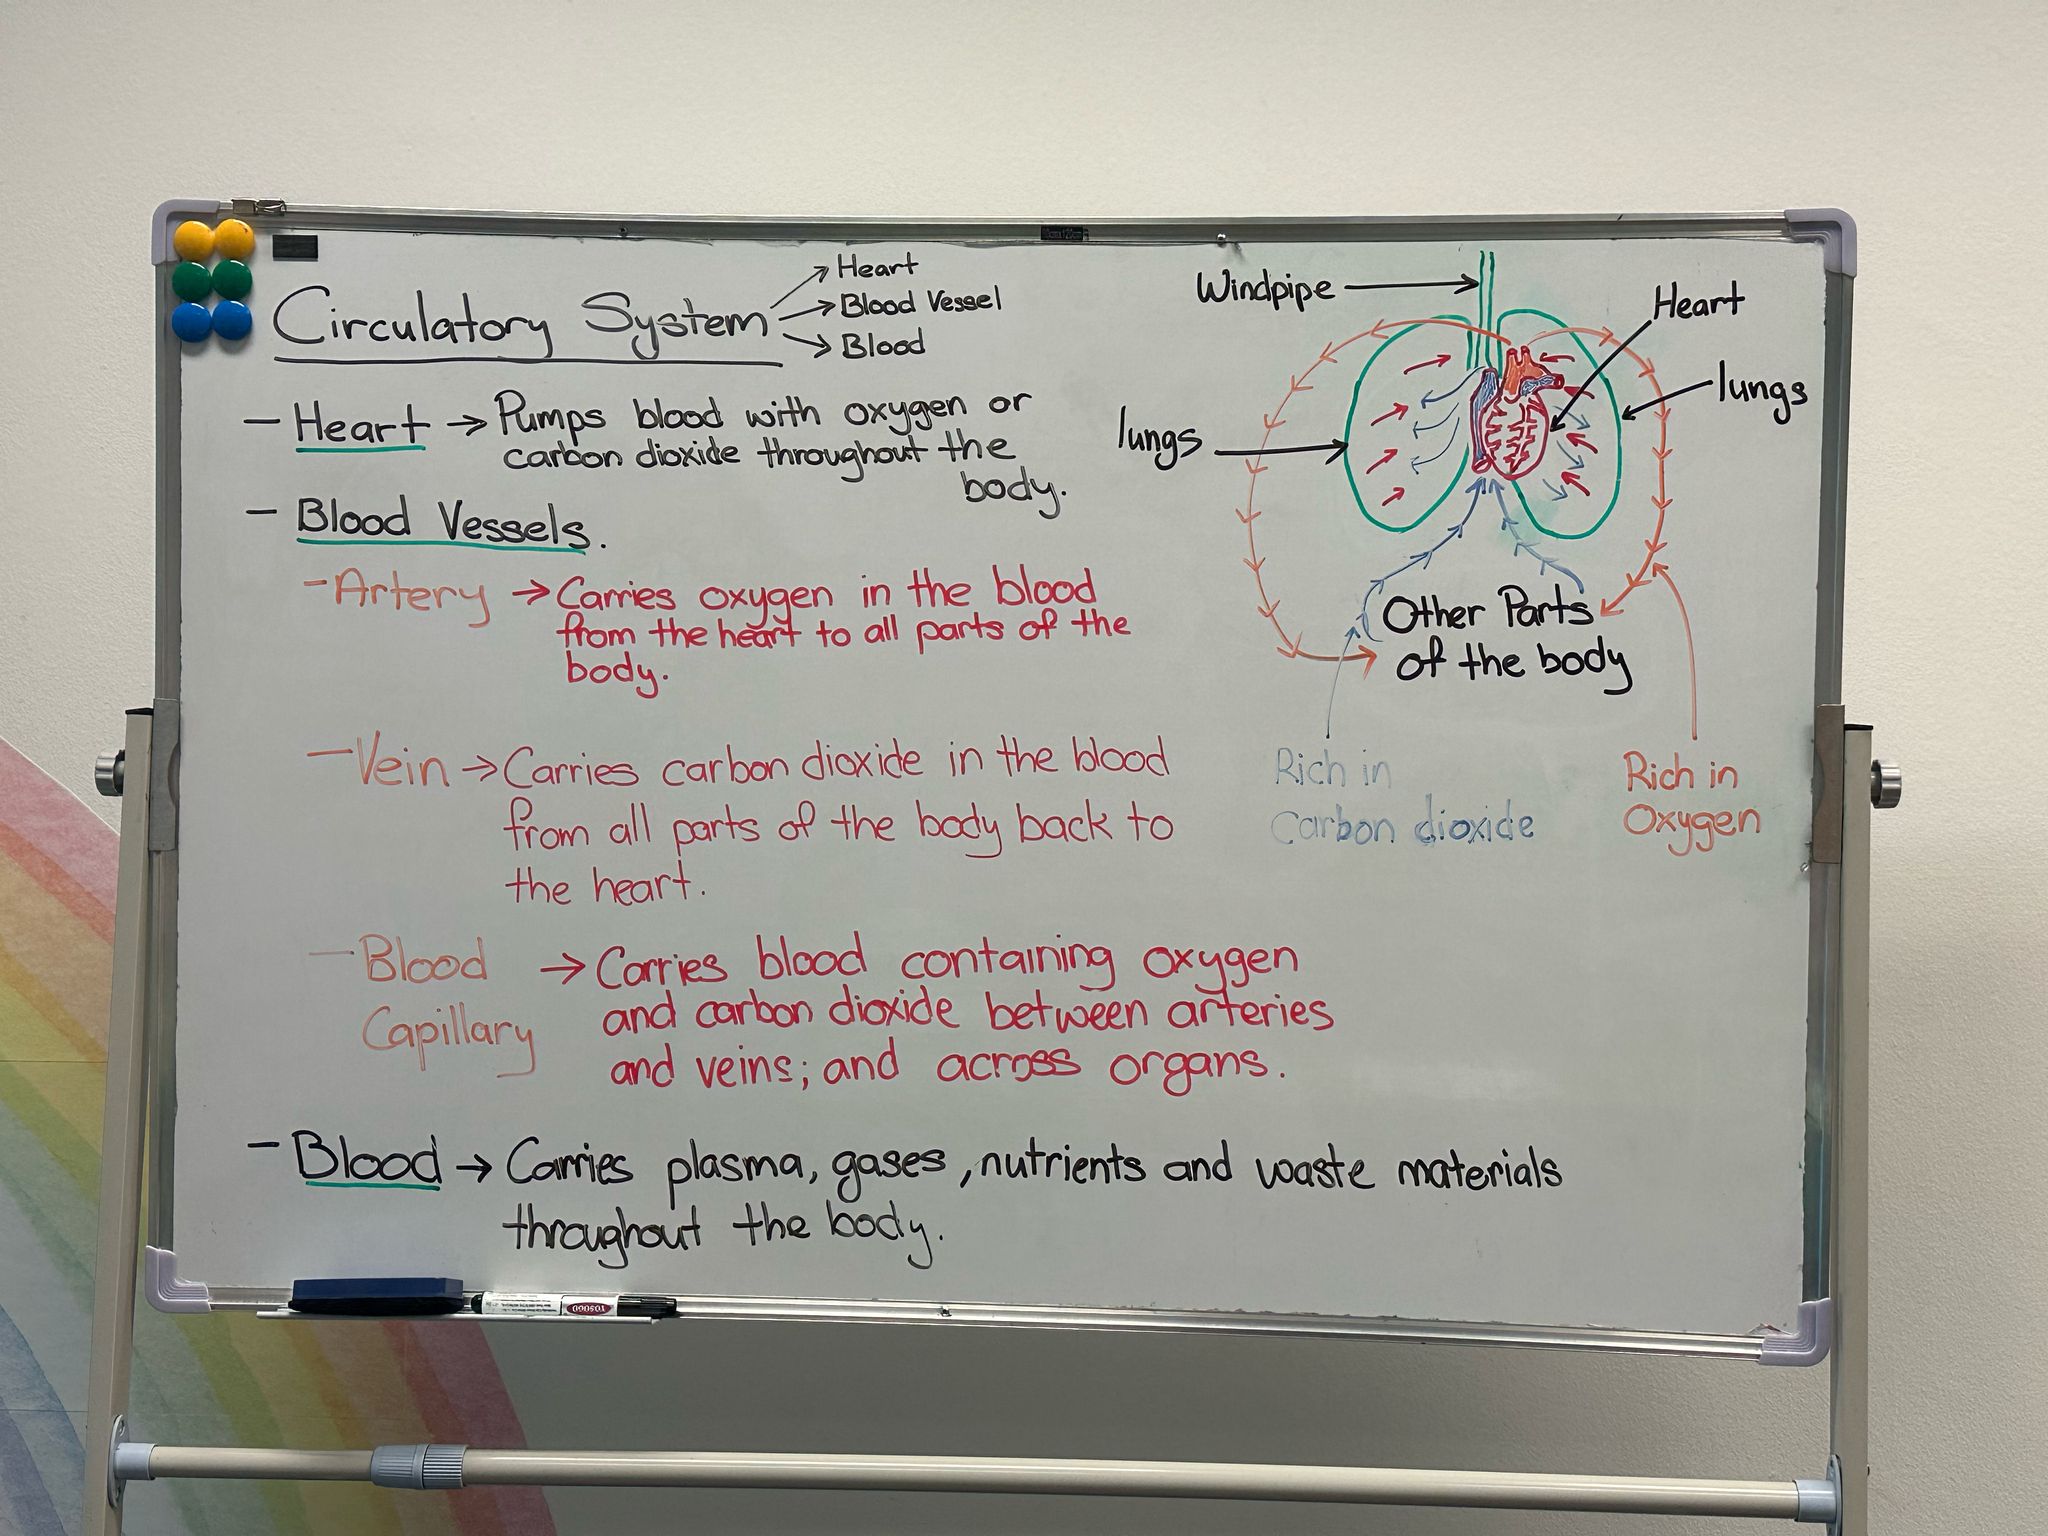 Circulatory System
Heart
Blood Vessel
Blood
- Heart → Pumps blood with oxygen or
carbon dioxide throughout the
body.
- Blood Vessels.
- Artery → Carries oxygen in the blood
from the heart to all parts of the
body.
- Vein → Carries carbon dioxide in the blood
from all parts of the body back to
the heart.
- Blood
Capillary → Carries blood containing oxygen
and carbon dioxide between arteries
and veins; and across organs.
- Blood → Carries plasma, gases, nutrients and waste materials
throughout the body.
Windpipe
Heart
lungs
lungs
Other Parts
of the body
Rich in
Carbon dioxide
Rich in
Oxygen